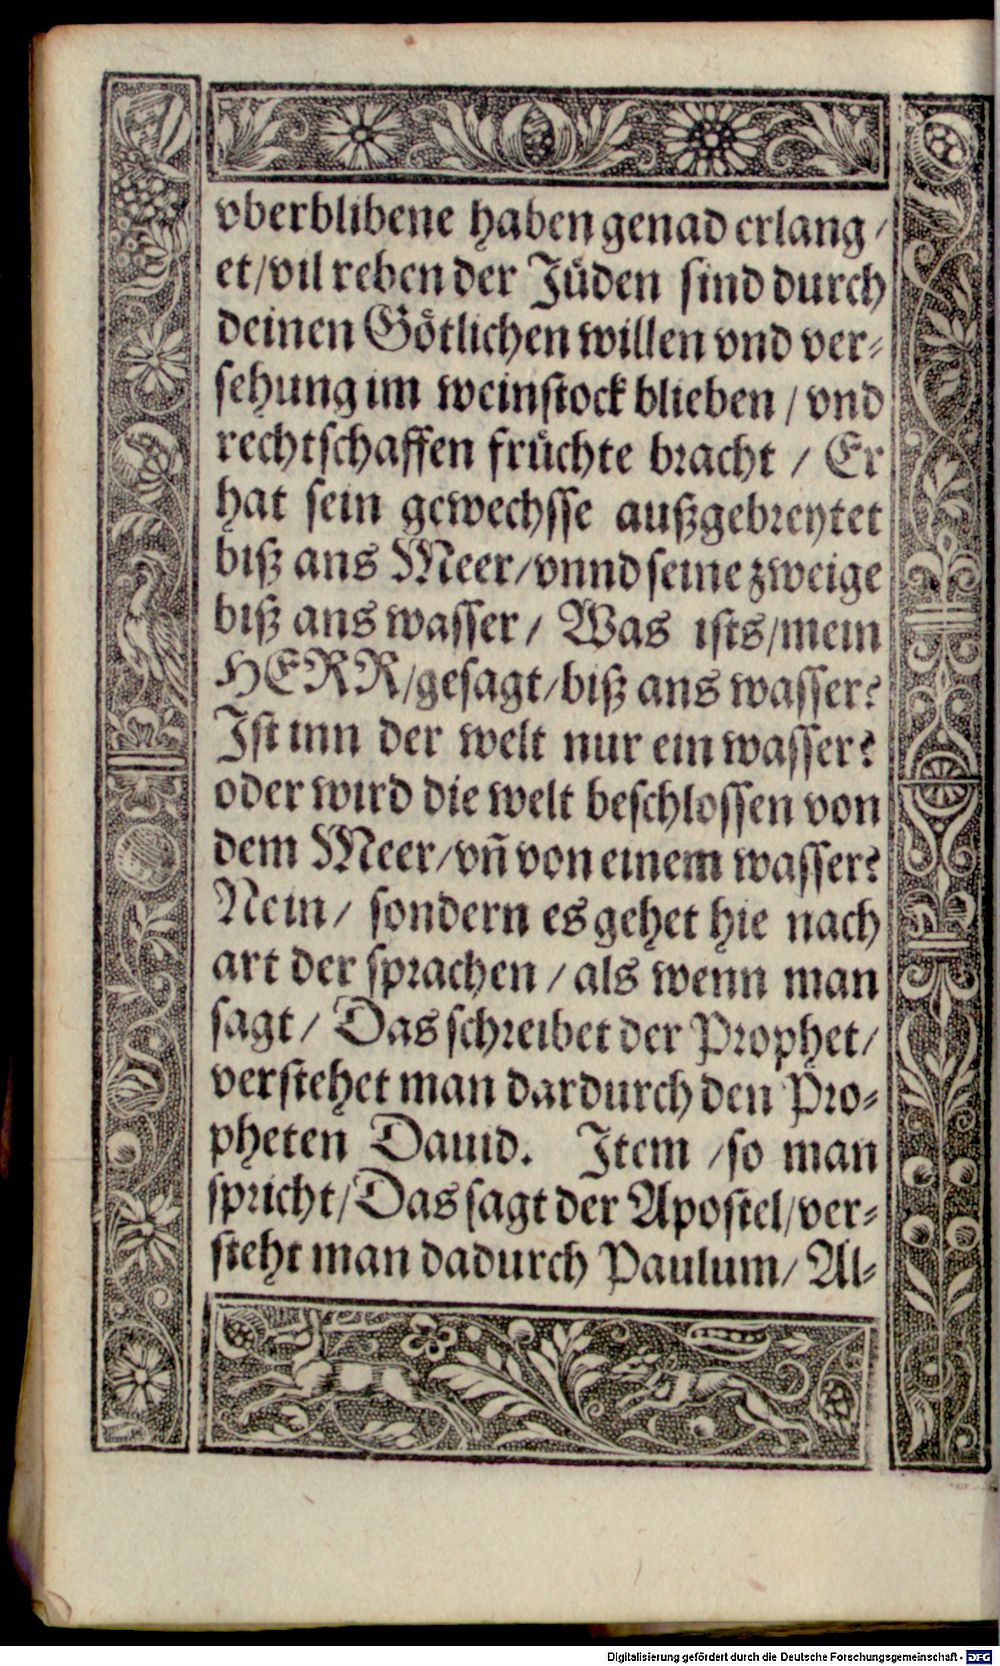 vberblibene haben genad erlang /
et/vil reben der Jůden sind durch
deinen Goͤtlichen willen vnd ver⸗
sehung im weinstock blieben / vnd
rechtschaffen fruͤchte bracht / Er
hat sein gewechsse außgebreytet
biß ans Meer/vnnd seine zweige
biß ans wasser / Was ists/mein
HERR/gesagt/biß ans wasser?
Ist inn der welt nur ein wasser?
oder wird die welt beschlossen von
dem Meer/vñ von einem wasser?
Nein / sondern es gehet hie nach
art der sprachen / als wenn man
sagt / Das schreibet der Prophet/
verstehet man dardurch den Pro⸗
pheten Dauid. Item /so man
spricht/Das sagt der Apostel/ver⸗
steht man dadurch Paulum/ Al⸗
Digitalisierung gefördert durch die Deutsche Forschungsgemeinschaft - DFG